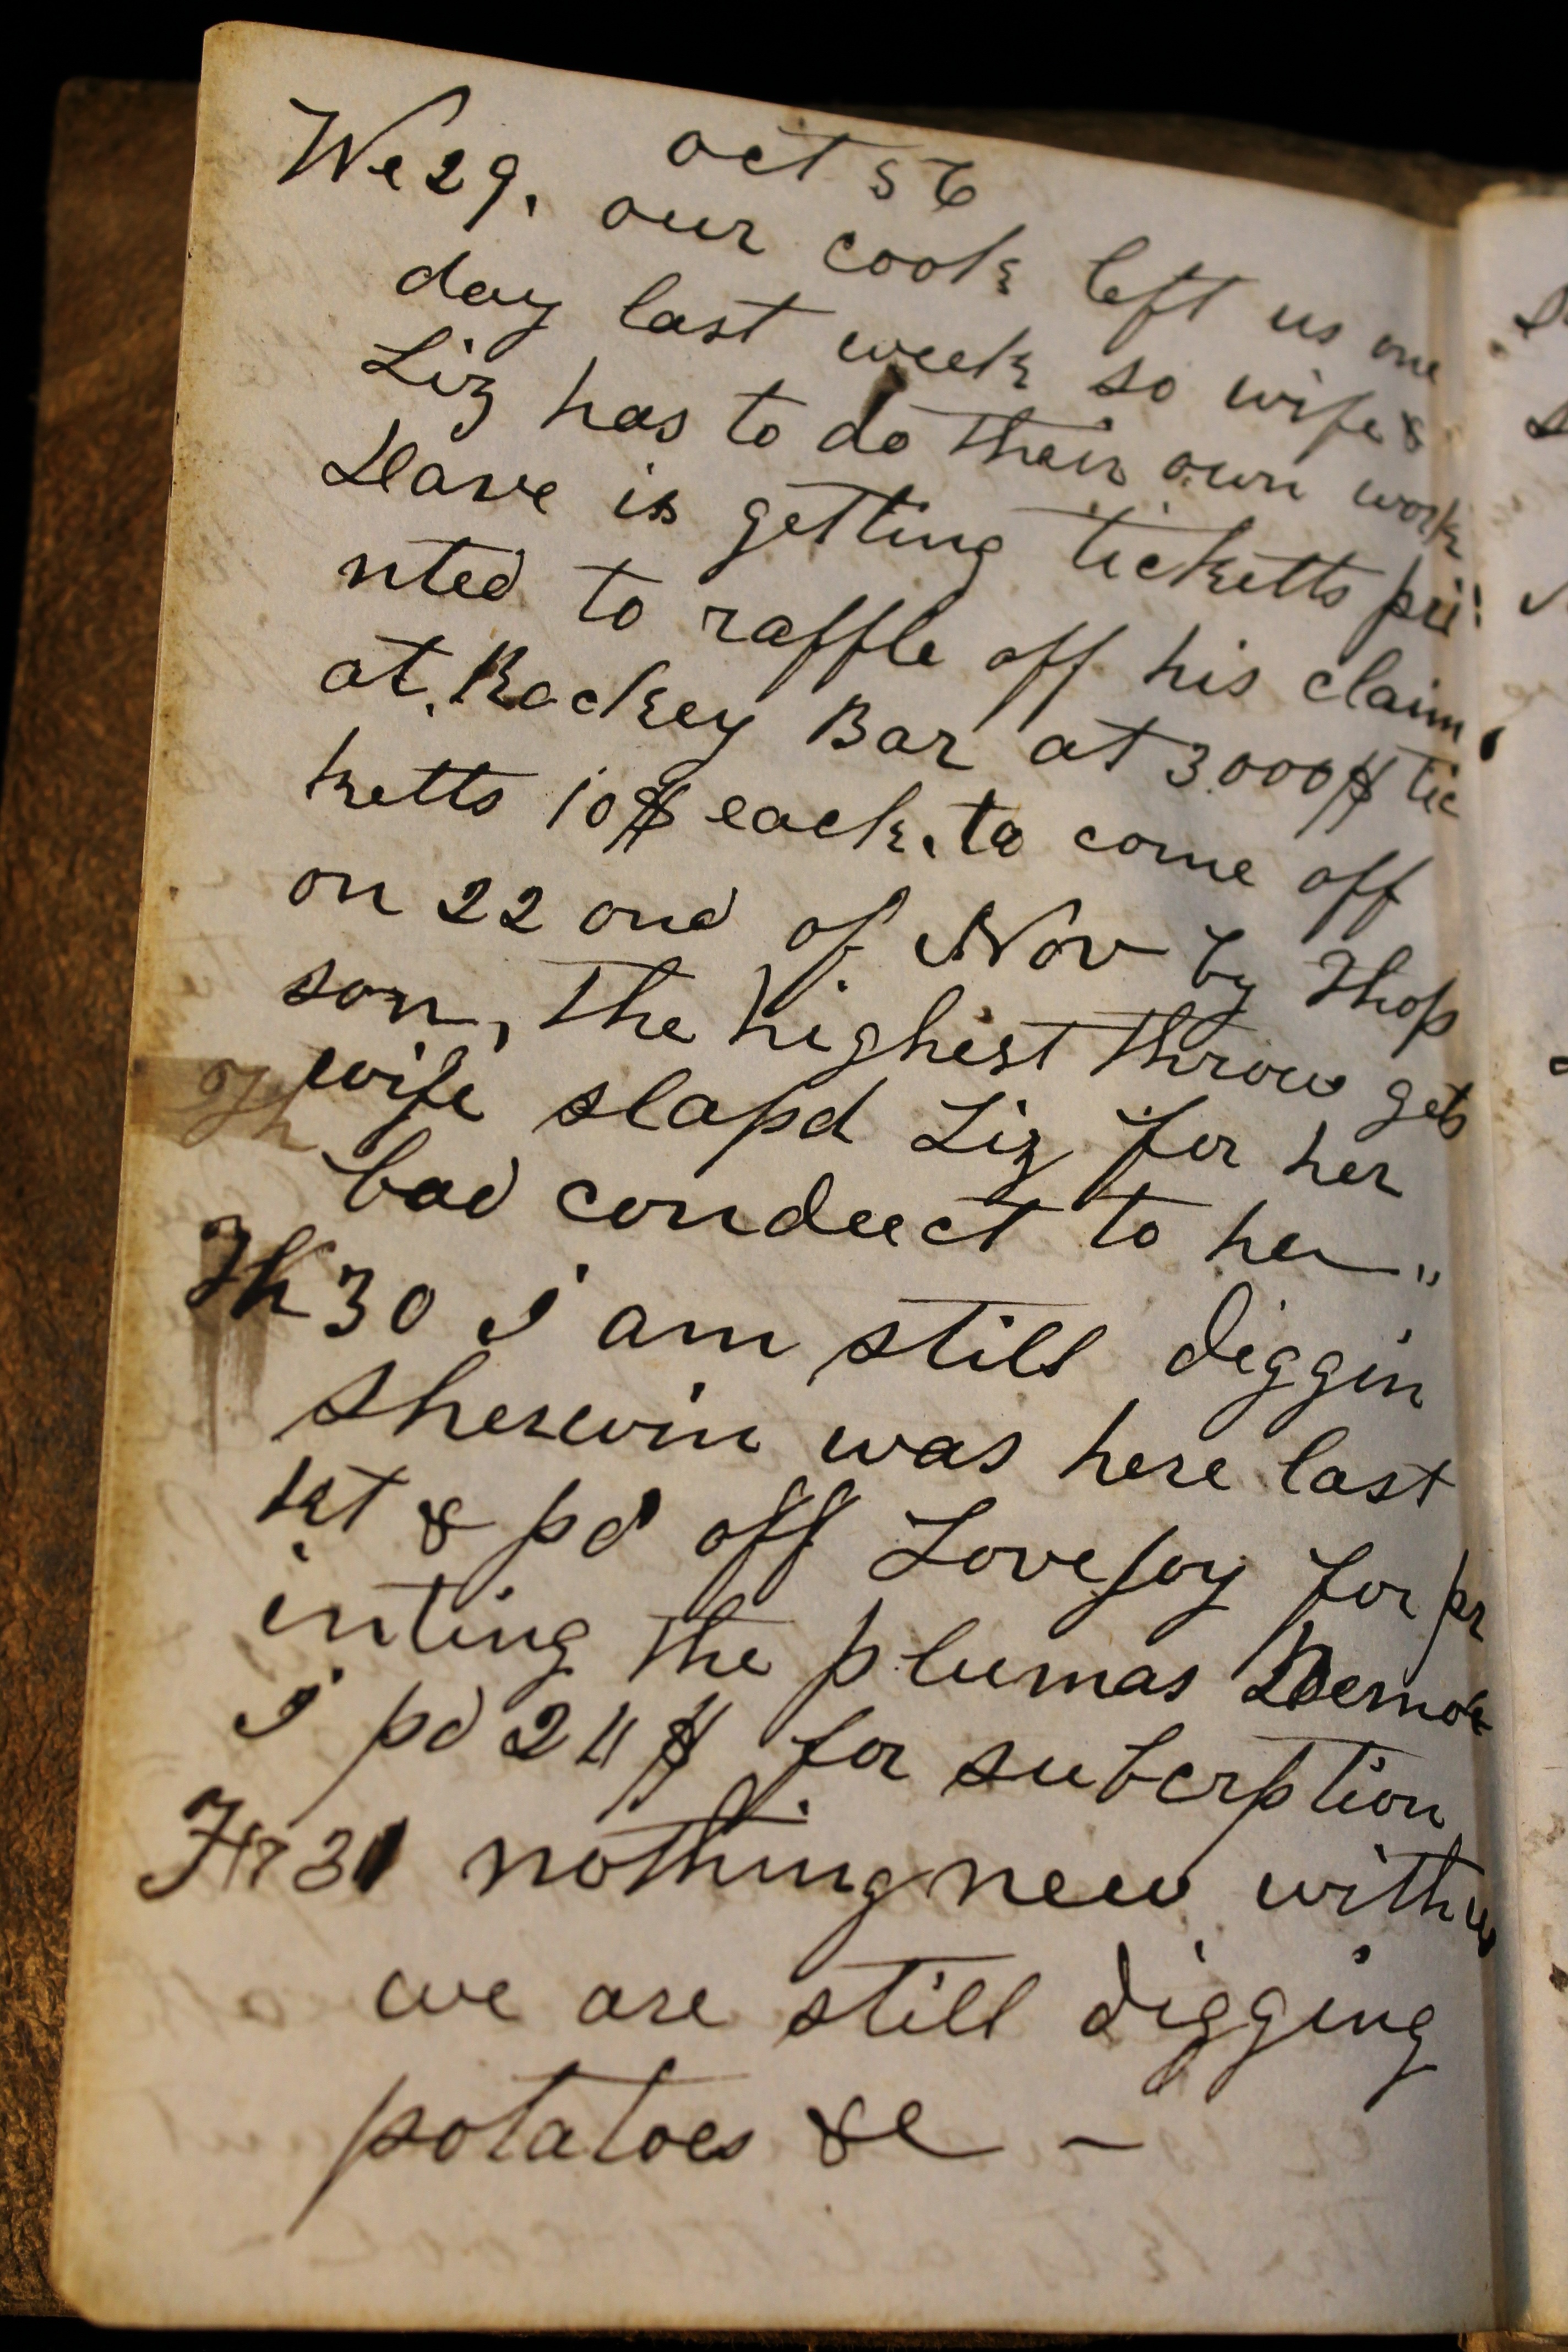 oct 56
We 29. our cook left us one
day last week so wife &
Liz has to do their own work
Dave is getting ticketts pri
nted to raffle off his claim
at Rockey Bar at 3000$ tic
ketts 10$ each. to come off
on 22 ond of Nov by Thop
son, the highest throw gets
Th wife slapd Liz for her
bad conduct to her "
Th 30 I am still diggin
Sherwin was here last
& pd off Lovejoy for pr
inting the plumas Demok
I pd 2 $ for subcrption
Fr 31 nothing new with us
we are still digging
potatoes &c —